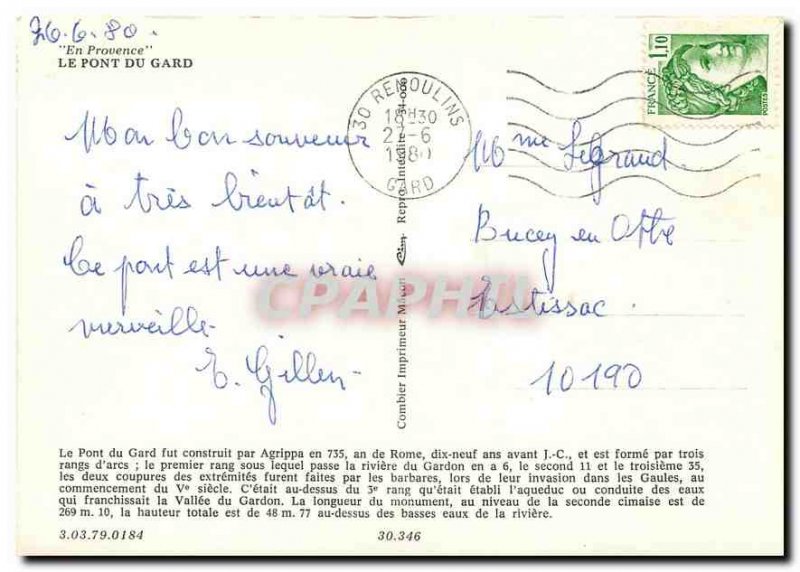 26.6.80.
"En Provence"
LE PONT DU GARD
Mon bon souvenir
à très bientôt.
Ce pont est une vraie
merveille.
E. Gillen
30 REMOULINS
18H30
6
1980
GARD
FRANCE
1,10
POSTES
Mme Legrand.
Bucey en Othe
Estissac.
10190
Combier Imprimeur Mâcon Cim Repro. Interdite 34-000
CPAPHIL
Le Pont du Gard fut construit par Agrippa en 735, an de Rome, dix-neuf ans avant J.-C., et est formé par trois
rangs d'arcs ; le premier rang sous lequel passe la rivière du Gardon en a 6, le second 11 et le troisième 35,
les deux coupures des extrémités furent faites par les barbares, lors de leur invasion dans les Gaules, au
commencement du Ve siècle. C'était au-dessus du 3e rang qu'était établi l'aqueduc ou conduite des eaux
qui franchissait la Vallée du Gardon. La longueur du monument, au niveau de la seconde cimaise est de
269 m. 10, la hauteur totale est de 48 m. 77 au-dessus des basses eaux de la rivière.
3.03.79.0184
30.346